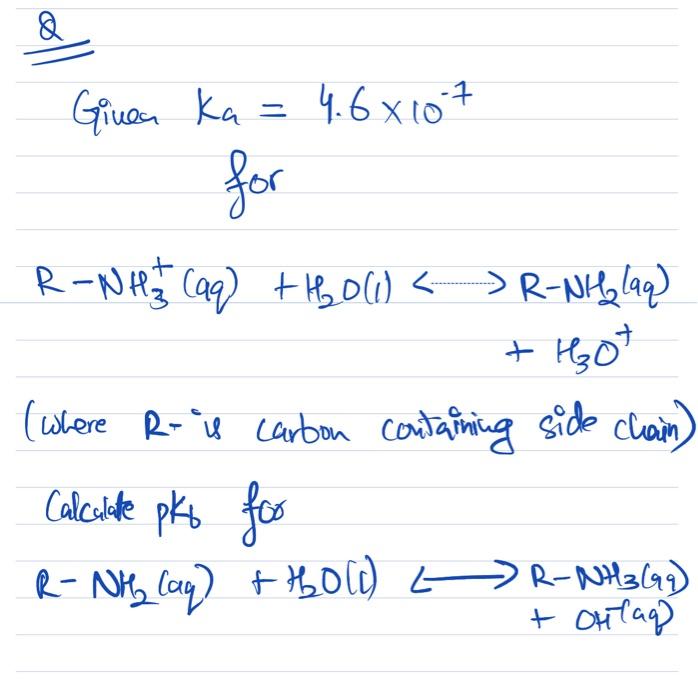 Q
Given Ka = 4.6 × 10⁻⁷
for
R-NH₃⁺(aq) + H₂O(l) <······> R-NH₂(aq)
+ H₃O⁺
(where R- is carbon containing side chain)
Calculate pKb for
R-NH₂(aq) + H₂O(l) <—> R-NH₃(aq)
+ OH⁻(aq)